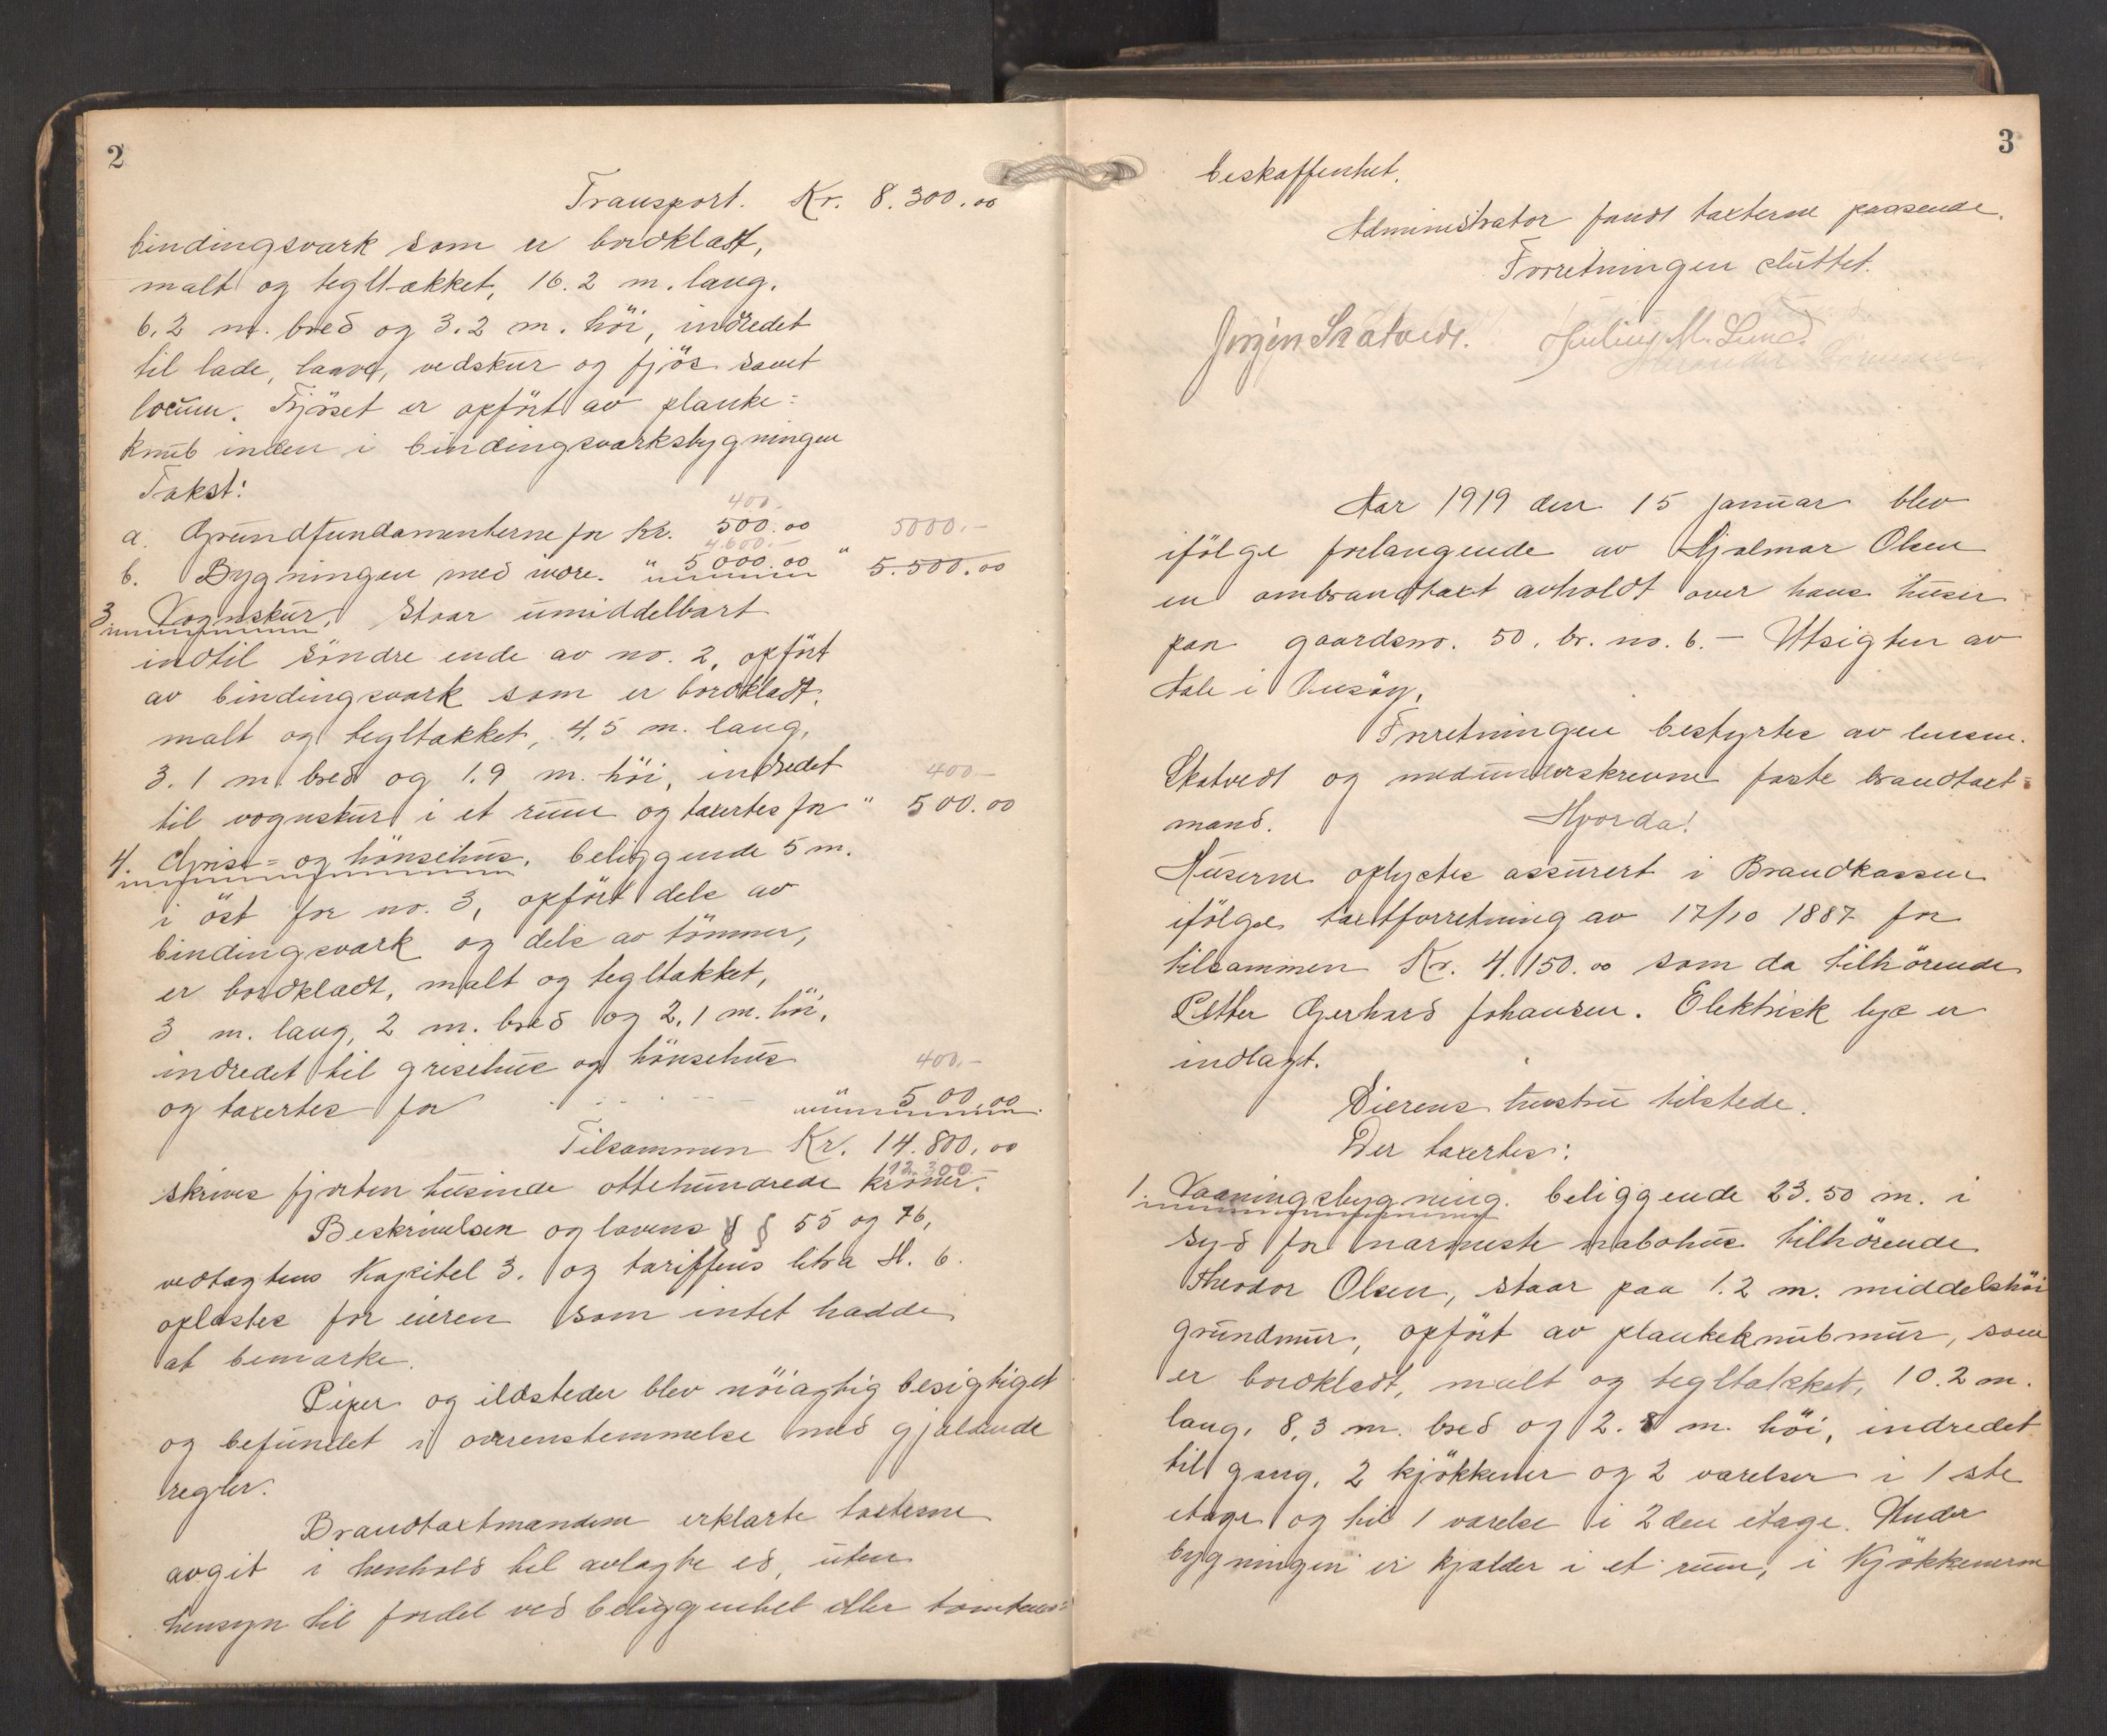 2
Transport. Kr. 8.300.00
bindingsværk som er bordklædt,
malt og tegltækket, 16.2 m. lang,
6.2 m. bred og 3.2 m. høi, indredet
til lade, laave, vedskur og fjøs samt
locum. Fjøset er opført av planke=
knub inden i bindingsværksbygningen
Takst:
400.-
a. Grundfundamenterne for Kr. 500.00 5000.-
4.600.-
b. Bygningen med videre. " 5000.00 " 5.500.00
3. Vognskur, staar umiddelbart
indtil søndre ende av no. 2, opført
av bindingsværk som er bordklædt,
malt og tegltækket, 4.5 m. lang,
3.1 m. bred og 1.9 m. høi, indredet 400.-
til vognskur i et rum og taxertes for " 500.00
4. Grise= og hønsehus, beliggende 5 m.
i øst for no. 3, opført dels av
bindingsværk og dels av tømmer,
er bordklædt, malt og tegltækket,
3 m. lang, 2 m. bred og 2.1 m. høi,
indredet til grisehus og hønsehus 400.-
og taxertes for " 500.00
Tilsammen Kr. 14.800.00
12.300.-
skrives fjorten tusinde ottehundrede kroner.
Beskrivelsen og lovens § § 55 og 76,
vedtægtens Kapitel 3. og tariffens litra H. 6.
oplæstes for eieren som intet hadde
at bemærke.
Piper og ildsteder blev nøiagtig besigtiget
og befundet i overenstemmelse med gjældende
regler.
Brandtaxtmændene erklærte taxterne
avgit i henhold til avlagte ed, uten
hensyn til fordel ved beliggenhet eller tomtens=
3
beskaffenhet.
Administrator fandt taxterne passende.
Forretningen sluttet.
Jørgen Skatvedt. Julius M. Lund.
Aar 1919 den 15 januar blev
ifølge forlangende av Hjalmar Olsen
en ombrandtaxt avholdt over hans huser
paa gaardsno. 50. br. no. 6. - Utsigten av
Aale i
Forretningen bestyrtes av lensm.
Skatvedt og medunderskrevne faste brandtaxt=
mænd. Hvorda!
Huserne oplystes assurert i Brandkassen
ifølge taxtforretning av 17/10 1887 for
tilsammen Kr. 4.150.00 som da tilhørende
Petter Gerhard Johansen. Elektrisk lys er
indlagt.
Eierens hustru tilstede.
Der taxertes:
1. Vaaningsbygning. beliggende 23.50 m. i
syd for nærmeste nabohus tilhørende
Theodor Olsen, staar paa 1.2 m. middelshøi
grundmur, opført av plankeknubmur, som
er bordklædt, malt og tegltækket, 10.2 m.
lang, 8.3 m. bred og 2.8 m. høi, indredet
til gang, 2 kjøkkener og 2 værelser i 1ste
etage og til 1 værelse i 2den etage. Under
bygningen er kjælder i et rum, i Kjøkkenerne